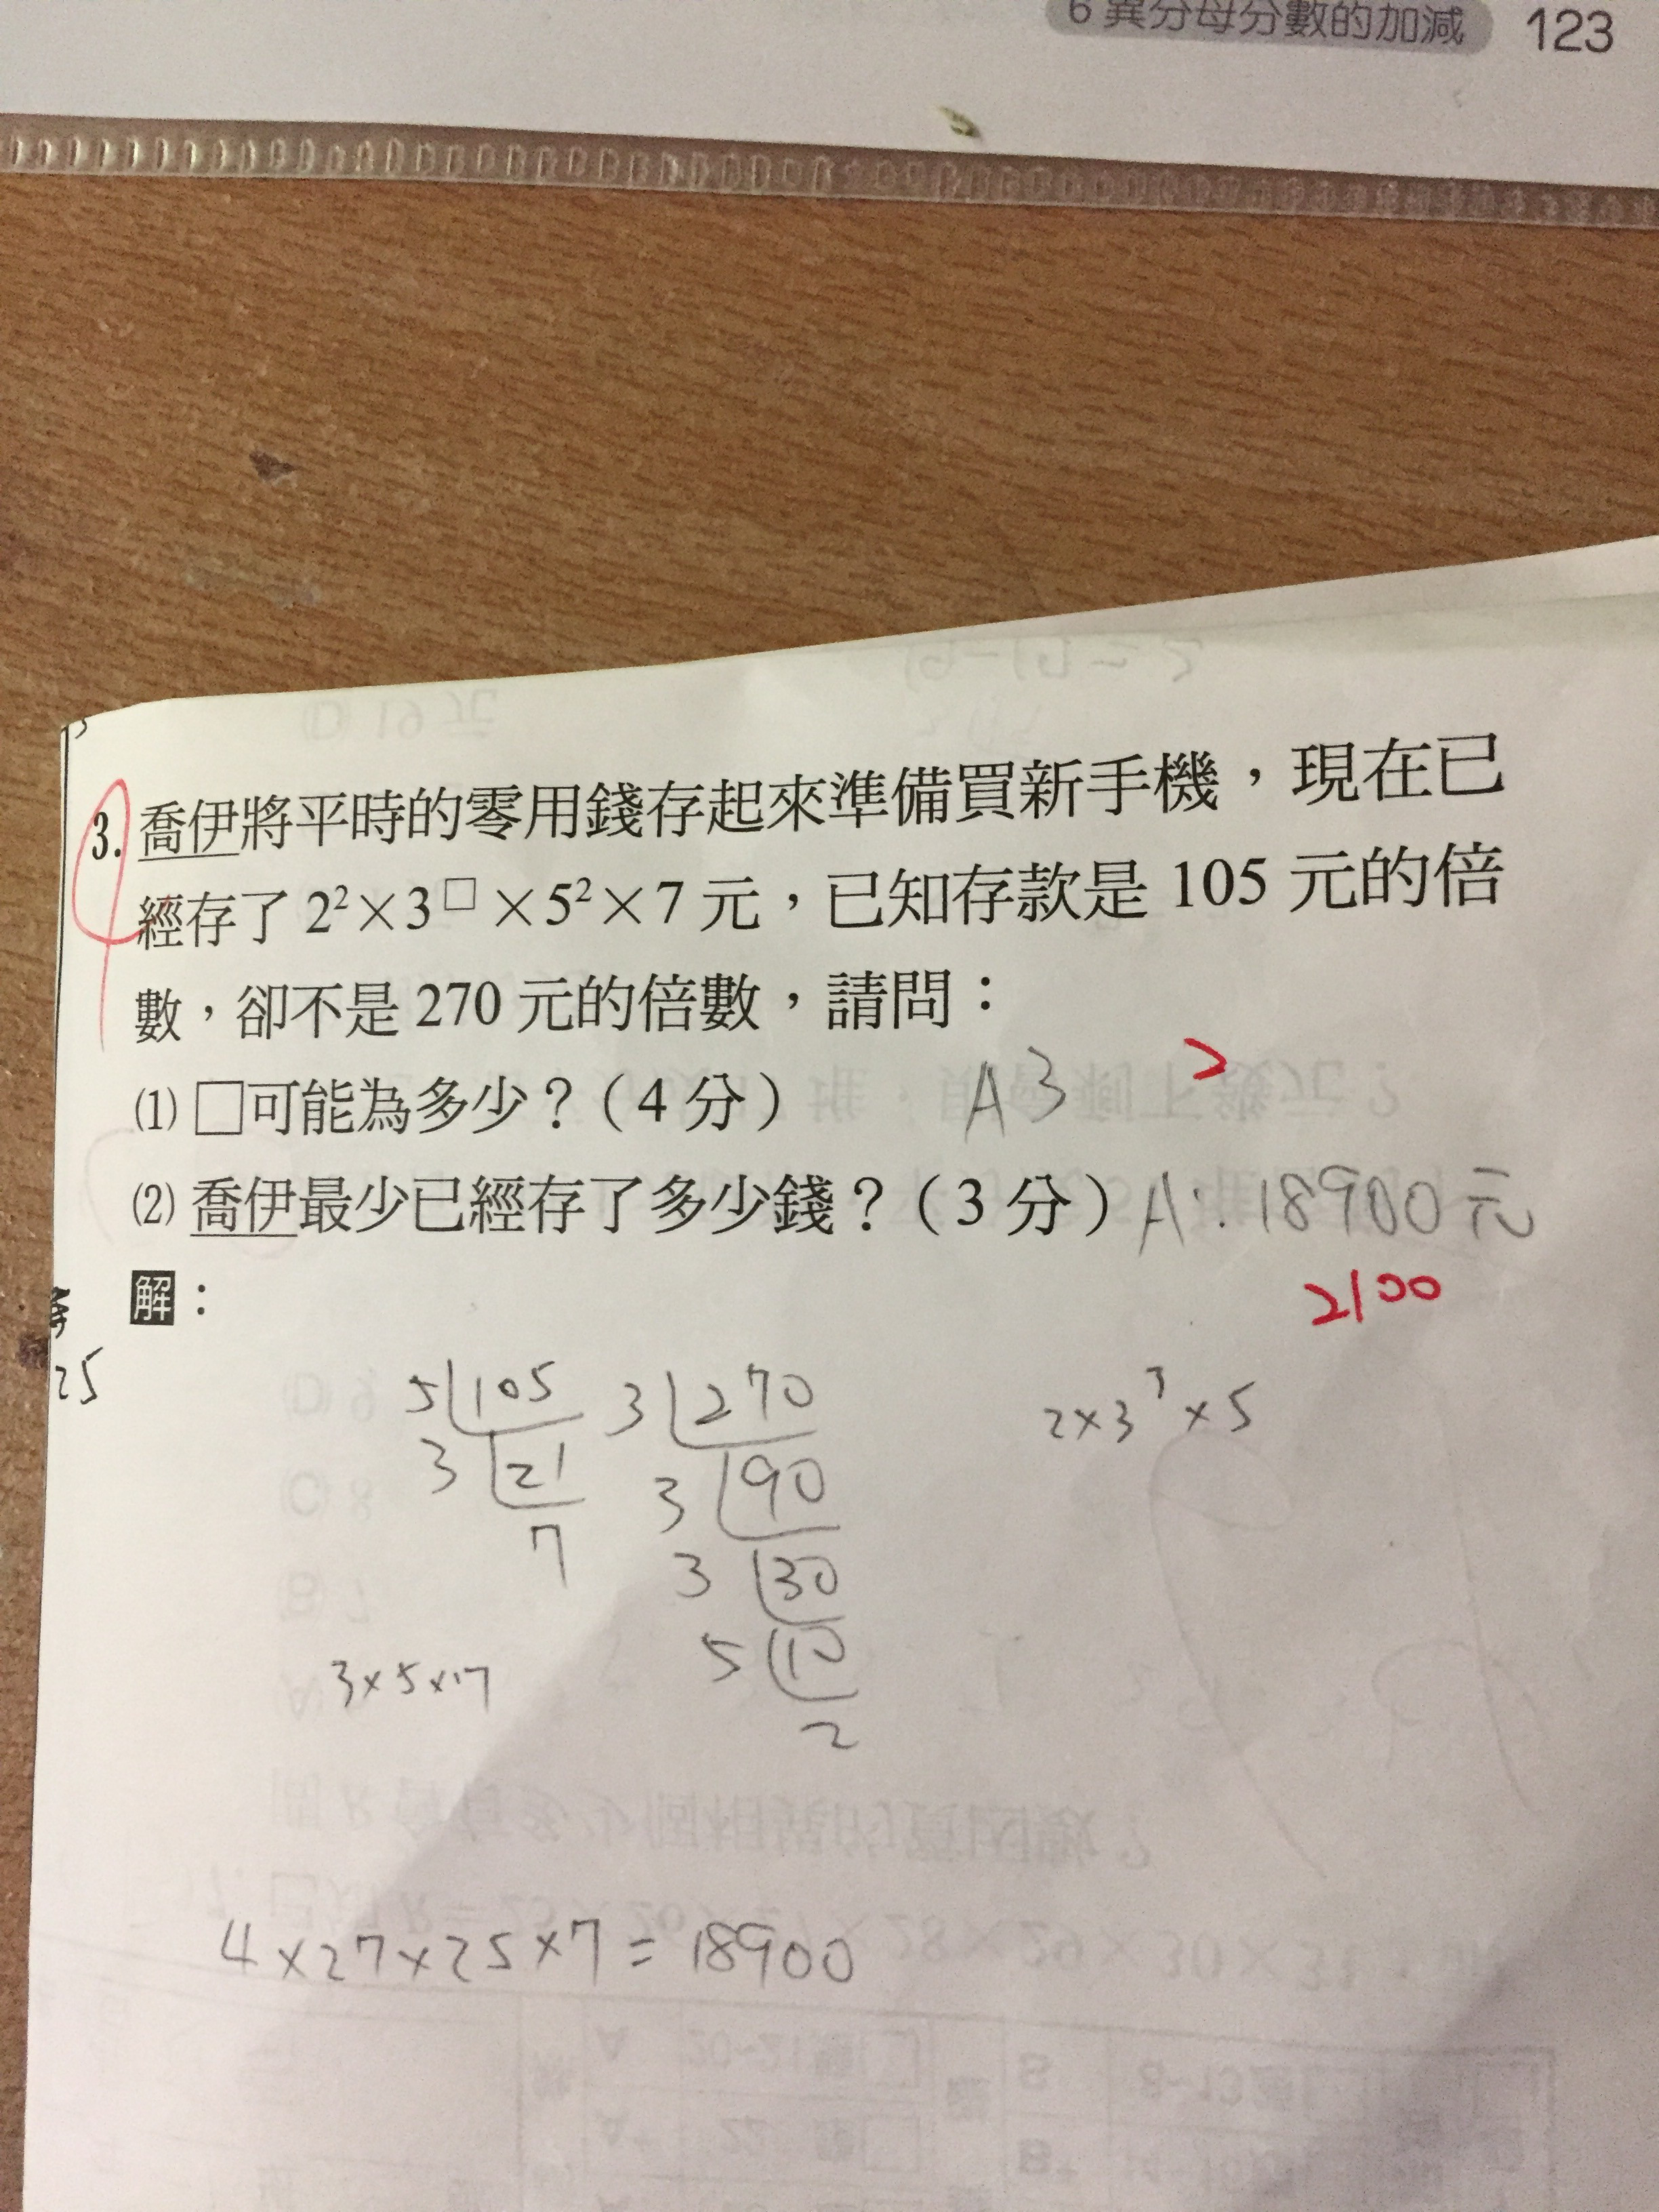 6 異分母分數的加減 123
3. 喬伊將平時的零用錢存起來準備買新手機,現在已
經存了 2²×3□×5²×7 元,已知存款是 105 元的倍
數,卻不是 270 元的倍數,請問:
⑴ □可能為多少?(4 分) A 3
⑵ 喬伊最少已經存了多少錢?(3 分) A: 18900 元
2100
解:
25
5 105 3 270 2×3³×5
3 21 3 90
7 3 30
5 10
3×5×7
2
4×27×25×7=18900